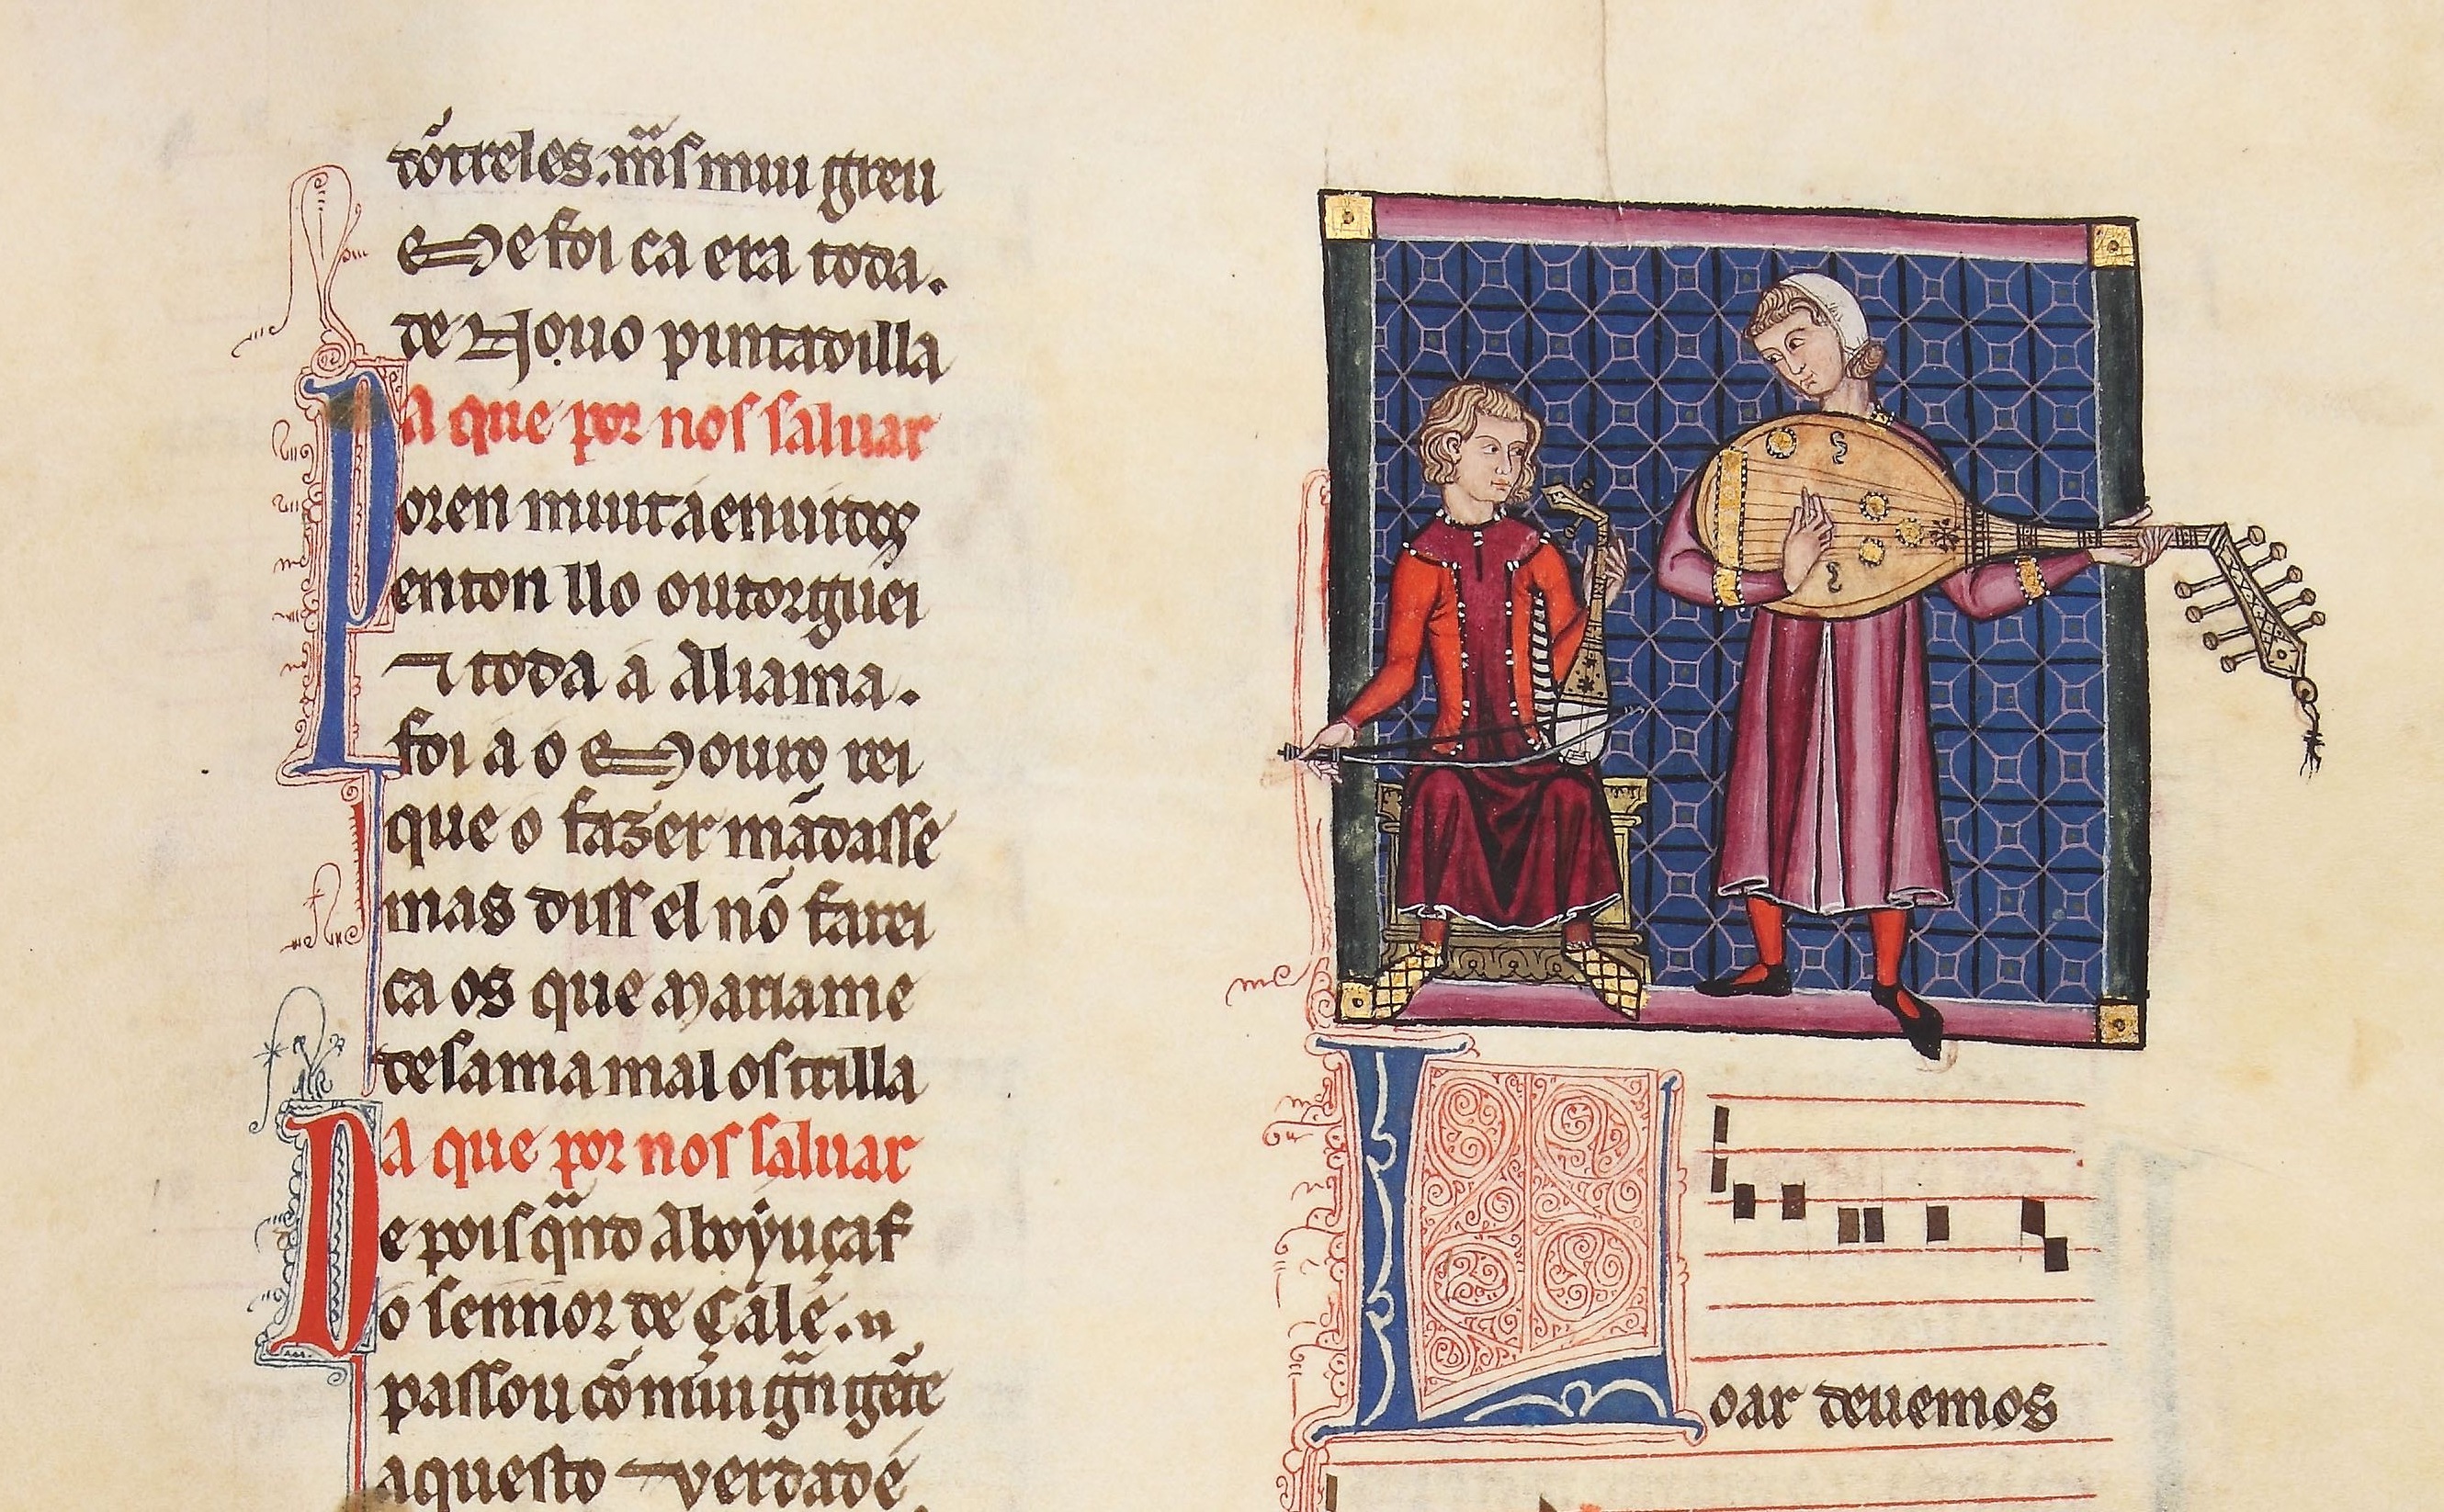 tõrreles. mais mui greu
Me foi ca era toda.
de Nouo pintadilla
A que por nos saluar
Poren muita enuitos
enton llo outorguei
⁊ toda a Aliama.
foi a o Mouro rei
que o fazer mãdasse
mas diss el nõ farei
ca os que Mariame
desama mal os trilla
A que por nos saluar
De pois qndo Aboyuçaf
o sennor de Çalé.
passou cõ mui grã gẽte
aquesto ⁊ verdadé
Loar deuemos